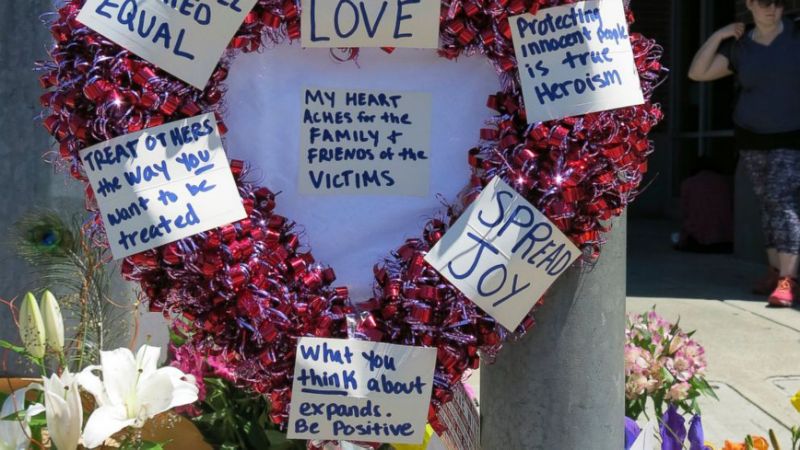 EQUAL
LOVE
Protecting
innocent people
is true
Heroism
MY HEART
ACHES for the
FAMILY +
FRIENDS of the
VICTIMS
TREAT OTHERS
the WAY YOU
want to be
treated
SPREAD
JOY
What You
think about
expands.
Be Positive